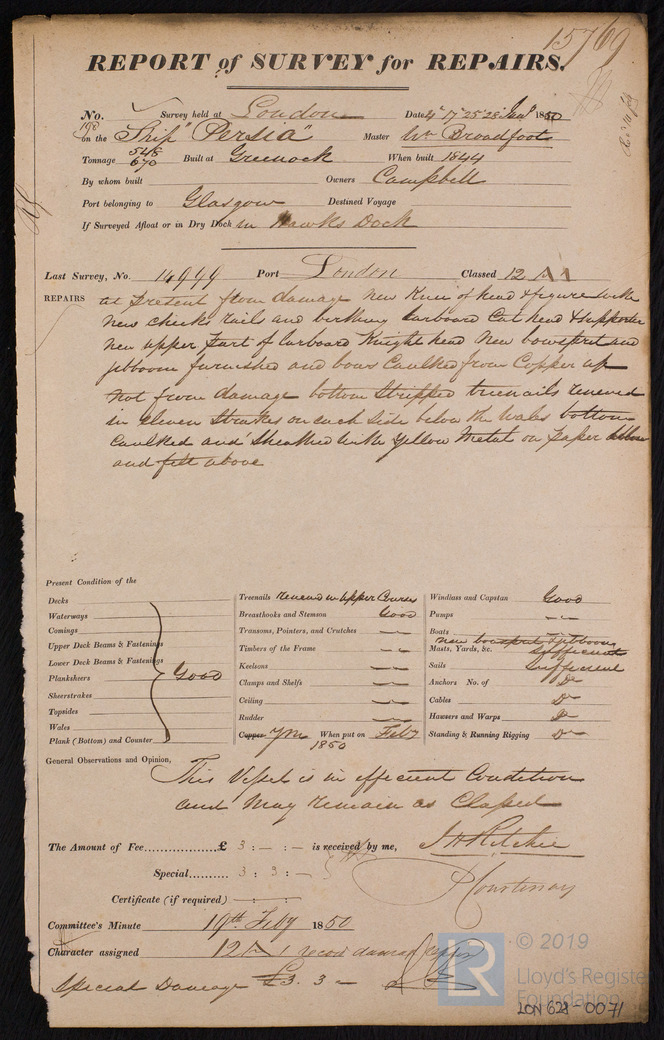 15769
REPORT of SURVEY for REPAIRS.
No. Survey held at London Date 4" 17" 25" 28 Jany 1850
on the Ship "Persia" Master Wm Broadfoot
Tonnage 548 670 Built at Greenock When built 1844
By whom built Owners Campbell
Port belonging to Glasgow Destined Voyage
If Surveyed Afloat or in Dry Dock in Hawks Dock
Last Survey, No. 14999 Port London Classed 12 A1
REPAIRS at present from damage New Knee of head & figure with
New cheeks rails and berthing Larboard Cat head & supporter
New upper part of Larboard Knight head New bowsprit and
jibboom furnished and bows Caulked from Copper up
Not from damage bottom Stripped treenails renewed
in eleven Strakes on each side below the Wales bottom
Caulked and Sheathed with Yellow Metal on paper
and felt above
Present Condition of the
Decks
Waterways
Comings
Upper Deck Beams & Fastenings
Lower Deck Beams & Fastenings
Planksheers Good
Sheerstrakes
Topsides
Wales
Plank (Bottom) and Counter
Treenails renewed in upper Courses
Breasthooks and Stemson Good
Transoms, Pointers, and Crutches
Timbers of the Frame
Keelsons
Clamps and Shelfs
Ceiling
Rudder
Copper YM When put on Feby
1850
Windlass and Capstan Good
Pumps
Boats
new bowsprit & jibboom
Masts, Yards, &c. Sufficient
Sails Sufficient
Anchors No. of Do
Cables Do
Hawsers and Warps Do
Standing & Running Rigging Do
General Observations and Opinion,
This Vessel is in efficient Condition
and May remain as Classed
The Amount of Fee £ 3 : - : - is received by me, J H Ritchie
Special 3 : 3 : -
Courtenay
Certificate (if required)
Committee's Minute 19th Feby 1850
Character assigned 12 A 1 record damage
Special Damage £3. 3 -
LR
© 2019
Lloyd's Register
Foundation
LON 628-0071